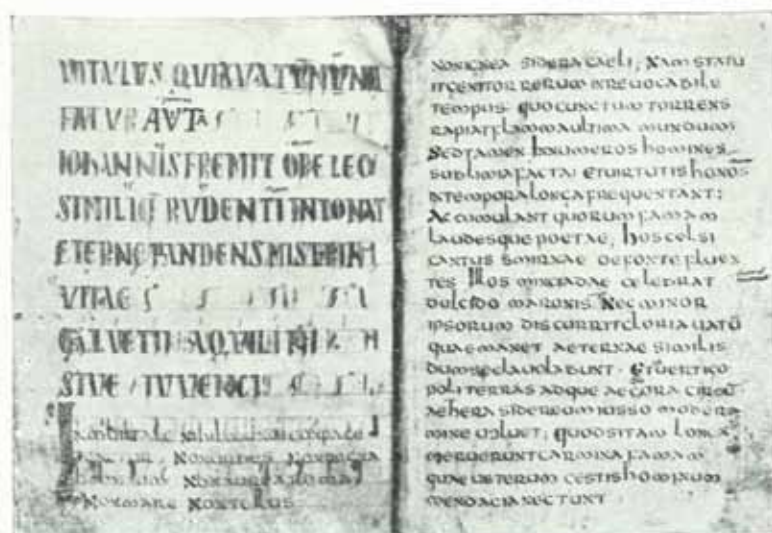 VITULUS QUIAVATŪNŪNA
FATUR AUTA
IOHANNIS FREMIT ORE LEO
SIMILIQ RUDENTI INTONAT
ETERNE PANDENS MISTERIA
VITAE
GALVETTI AQUILINI
SIVE IUVENCI
Inmortale nihil mundi conpage
Non orbis non regna
hominum non aurea roma
Non mare non tellus
non ignea sidera caeli; nam statu
it genitor rerum inreuocabile
tempus quo cunctum torrens
rapiat flamma ultima mundum
Sed tamen innumeros homines
sublimia facta et uirtutis honos
in tempora longa frequentant;
Accumulant quorum famam
laudesque poetae; hos celsi
cantus smirnae de fonte fluen
tes Illos minciadae celebrat
dulcido maronis Nec minor
ipsorum discurrit gloria uatū
quae manet aeternae similis
dum secla uolabunt Et uertigo
poli terras adque aequora circū
aehera sidereum iusso modera
mine uoluet; Quod si tam longa
meruerunt carmina famam
quae ueterum gestis hominum
mendacia nectunt